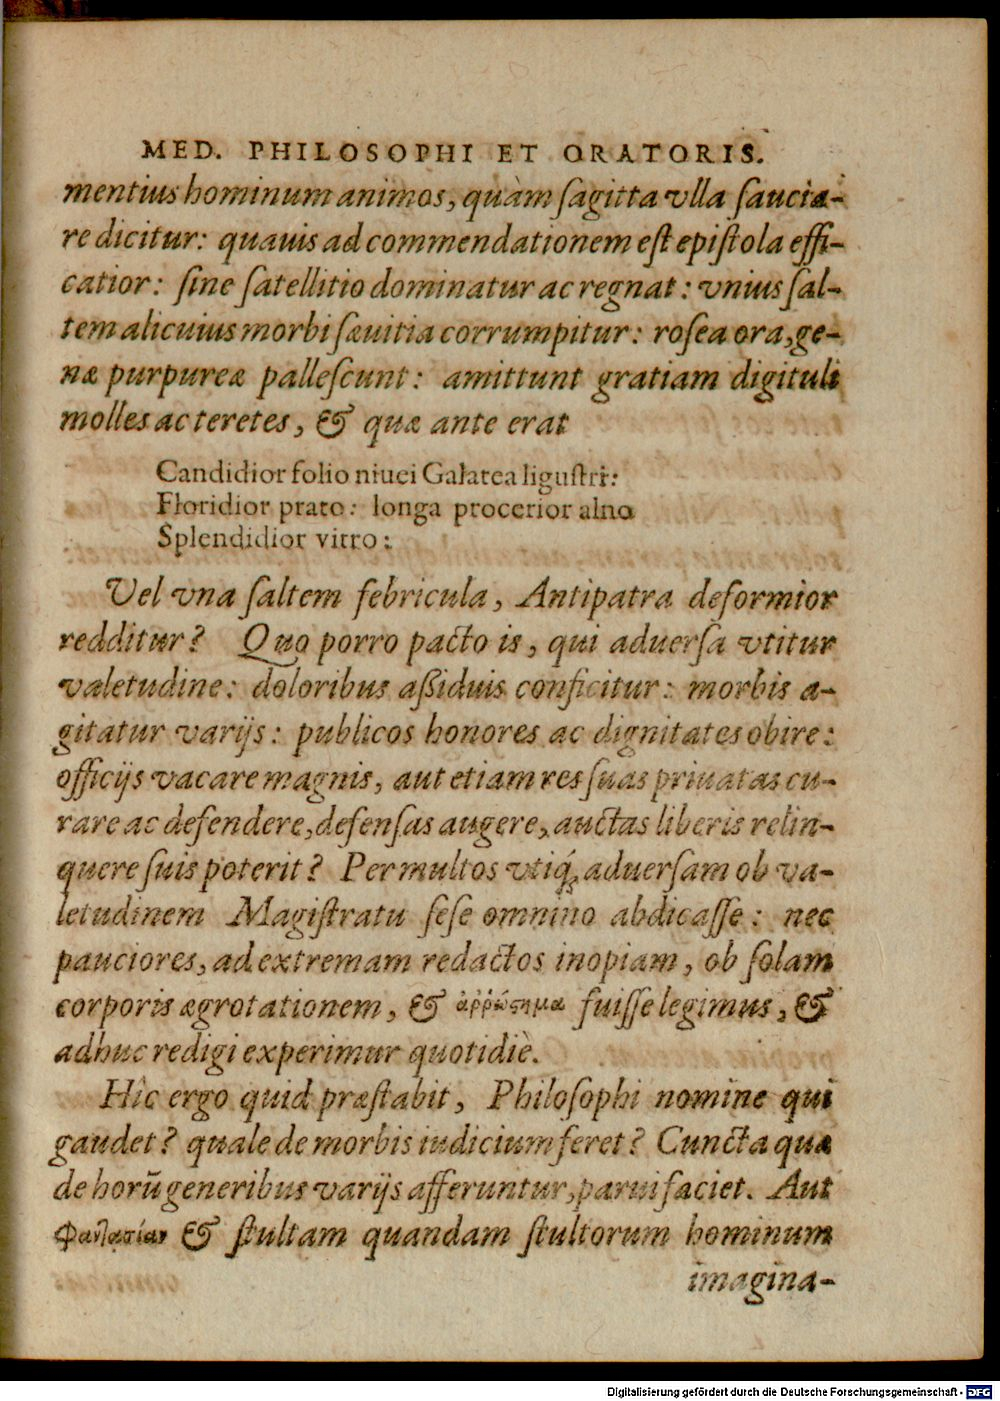 MED. PHILOSOPHI ET ORATORIS.
mentius hominum animos, quàm sagitta vlla saucia-
re dicitur: quauis ad commendationem est epistola effi-
catior: sine satellitio dominatur ac regnat: vnius sal-
tem alicuius morbi sæuitia corrumpitur: rosea ora, ge-
næ purpureæ pallescunt: amittunt gratiam digituli
molles ac teretes, & quæ ante erat
Candidior folio niuei Galatea ligustri:
Floridior prato: longa procerior alno
Splendidior vitro:
Vel vna saltem febricula, Antipatra deformior
redditur? Quo porro pacto is, qui aduersa vtitur
valetudine: doloribus aßiduis conficitur: morbis a-
gitatur varijs: publicos honores ac dignitates obire:
officijs vacare magnis, aut etiam res suas priuatas cu-
rare ac defendere, defensas augere, auctas liberis relin-
quere suis poterit? Permultos vtiq́; aduersam ob va-
letudinem Magistratu sese omnino abdicasse: nec
pauciores, ad extremam redactos inopiam, ob solam
corporis ægrotationem, & ἀῤῥώϛημα fuisse legimus, &
adhuc redigi experimur quotidiè.
Hîc ergo quid præstabit, Philosophi nomine qui
gaudet? quale de morbis iudicium feret? Cuncta quæ
de horũ generibus varijs afferuntur, parui faciet. Aut
Φαντασίαν & stultam quandam stultorum hominum
imagina-
Digitalisierung gefördert durch die Deutsche Forschungsgemeinschaft - DFG